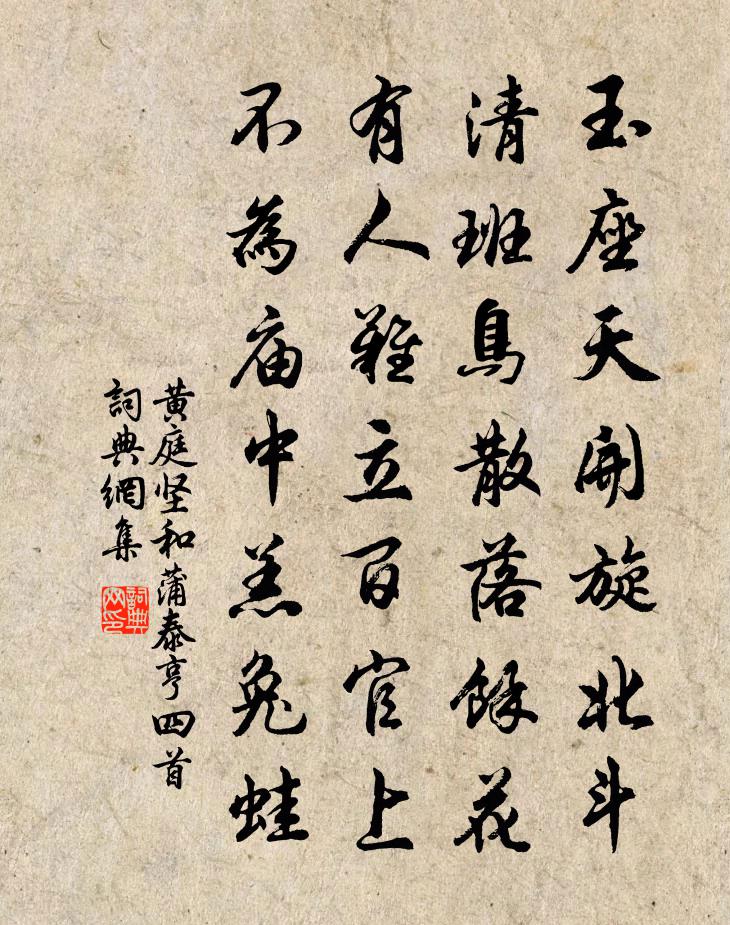 玉座天開旋北斗
清班鳥散落餘花
有人難立百官上
不為庙中羔兔蛙
黄庭坚和蒲泰亨四首
詞典網集
詞典网印